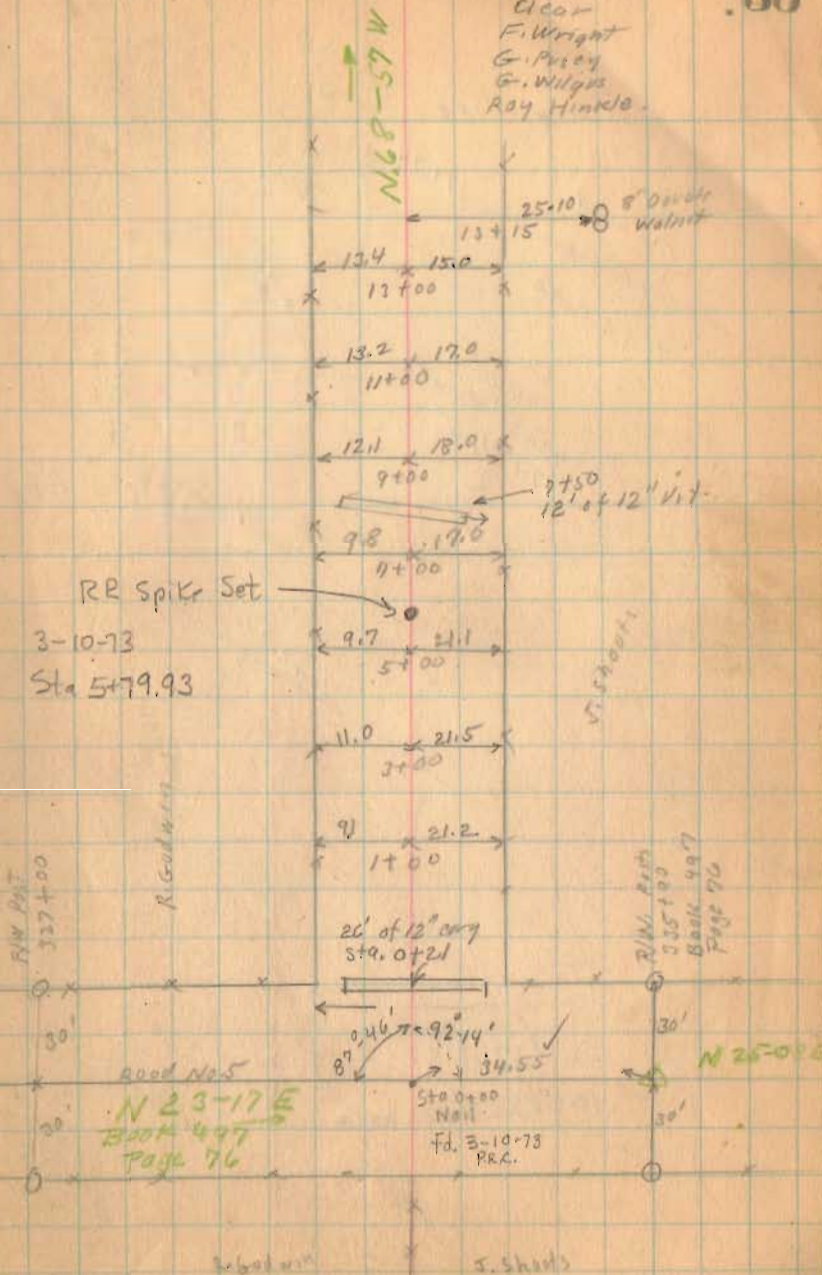 .60
Clear
F. Wright
G. Pusey
G. Wilgus
Roy Hinkle.
N.68-57 W
25.10
8" Double
Walnut
13+15
13.4 15.0
13+00
13.2 17.0
11+00
12.1 18.0
9+00
7+50
12' of 12" Vit.
9.8 17.6
7+00
RR Spike Set
3-10-73
Sta 5+79.93
9.7 21.1
5+00
J. Shoots
11.0 21.5
3+00
R. Godwin
91 21.2
1+00
R/W Post
327+00
R/W Posts
325+90
Book 497
Page 76
26' of 12" cmp
Sta. 0+21
30'
87° 46'
92° 14'
34.55
30'
Road No. 5
N 23-17 E
Book 497
Page 76
Sta 0+00
Nail
Fd. 3-10-73
P.R.C.
N 25-0
30'
30'
R. Godwin
J. Shoots